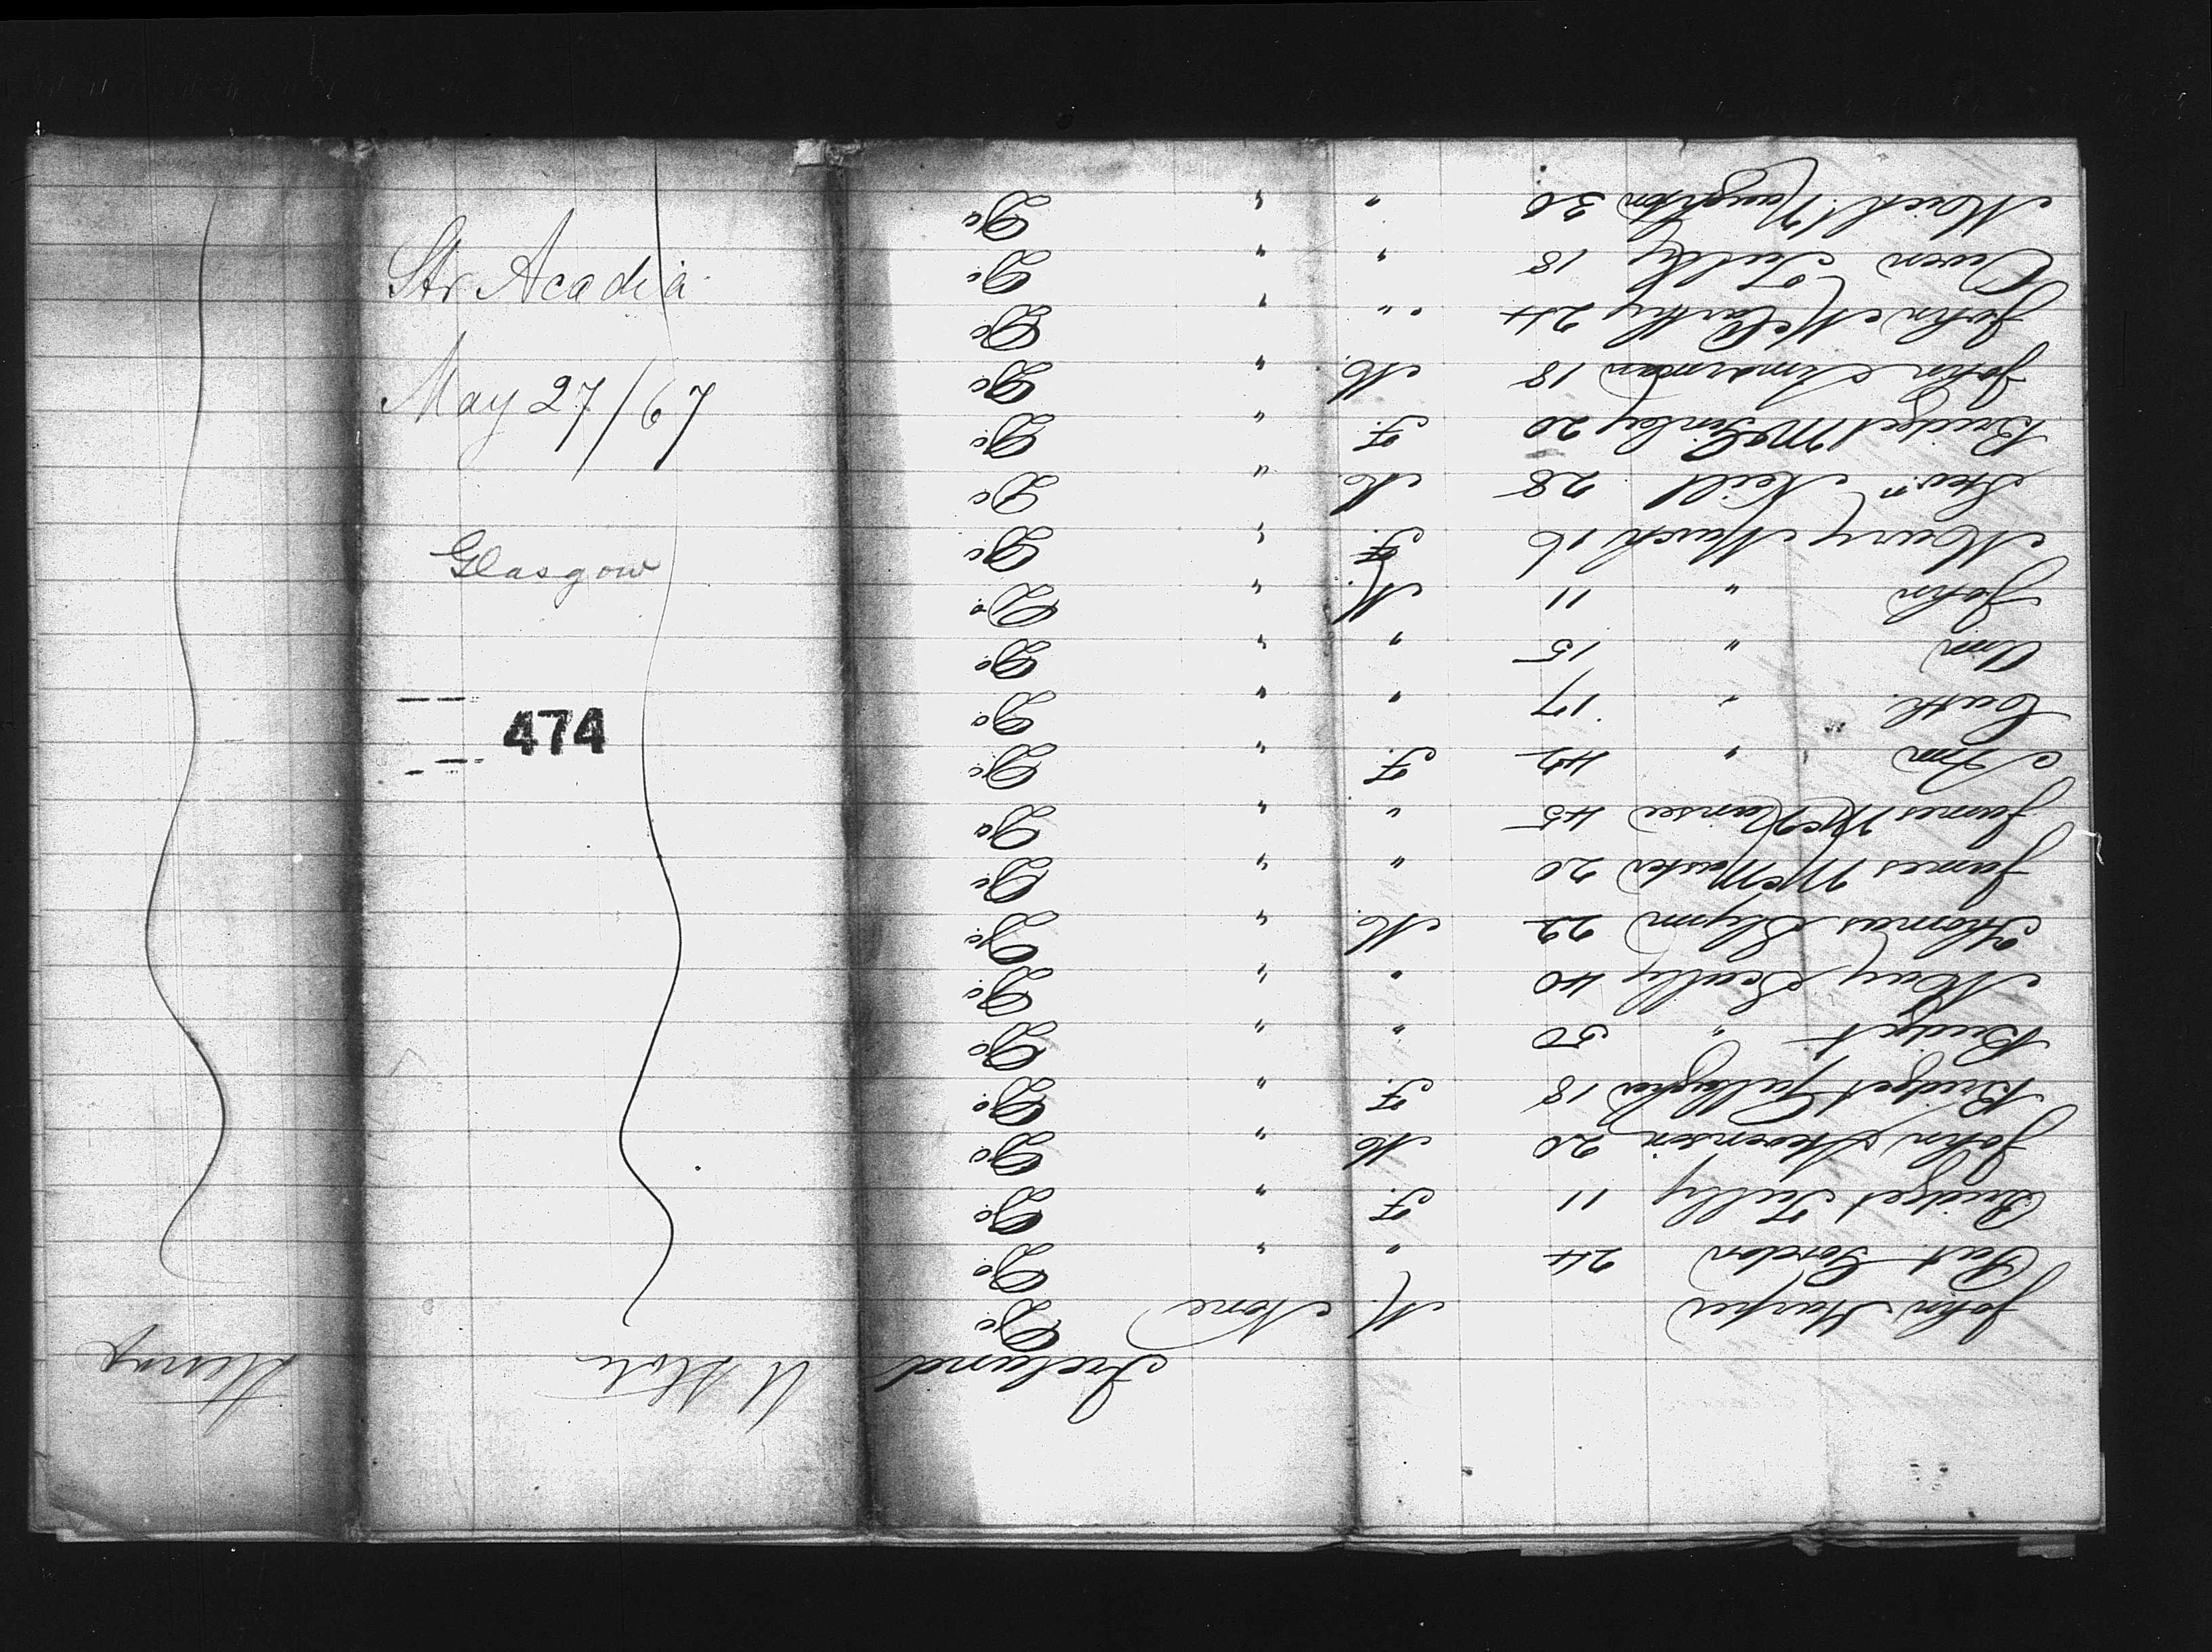 Str Acadia
May 27/67
Glasgow
474
Ireland U States Henry
John Harper M. None Do
Pat Gordon 24 " " Do
Bridget Tully 11 F. " Do
John Stevenson 20 M. " Do
Bridget Gallagher 18 F. " Do
Bridget " 50 " " Do
Mary Scully 40 " " Do
Thomas Glynn 22 M. " Do
James McMaster 20 " " Do
James 45 " " Do
Ann " 42 F. " Do
Cath. " 17 " " Do
Ann " 15 " " Do
John " 11 M. " Do
Mary 16 F. " Do
Stev.n Neill 28 M. " Do
Bridget McGinley 20 F. " Do
John 18 M. " Do
John McCarthy 24 " " Do
Owen Tully 18 " " Do
Mich.l Naughton 30 " " Do